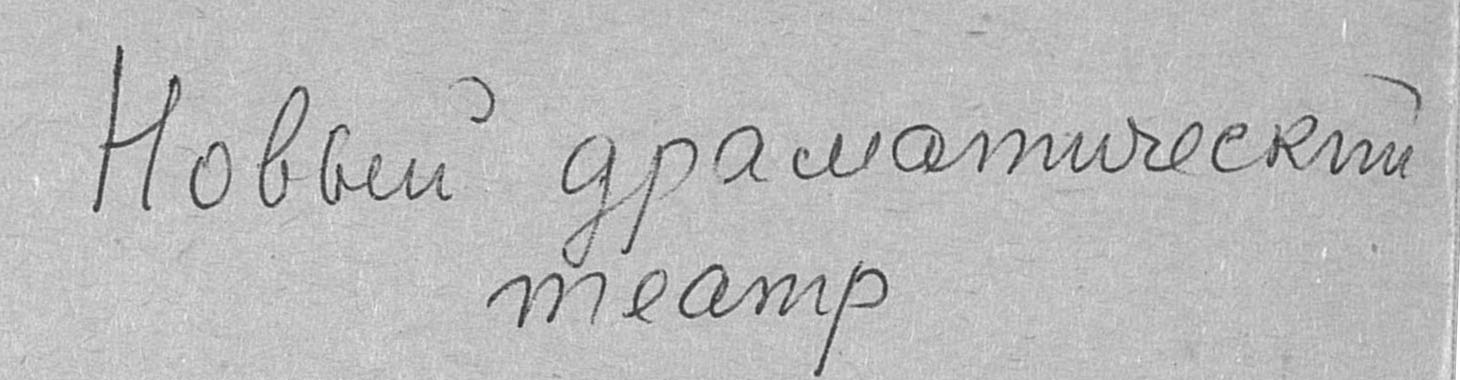 Новый драматический
театр